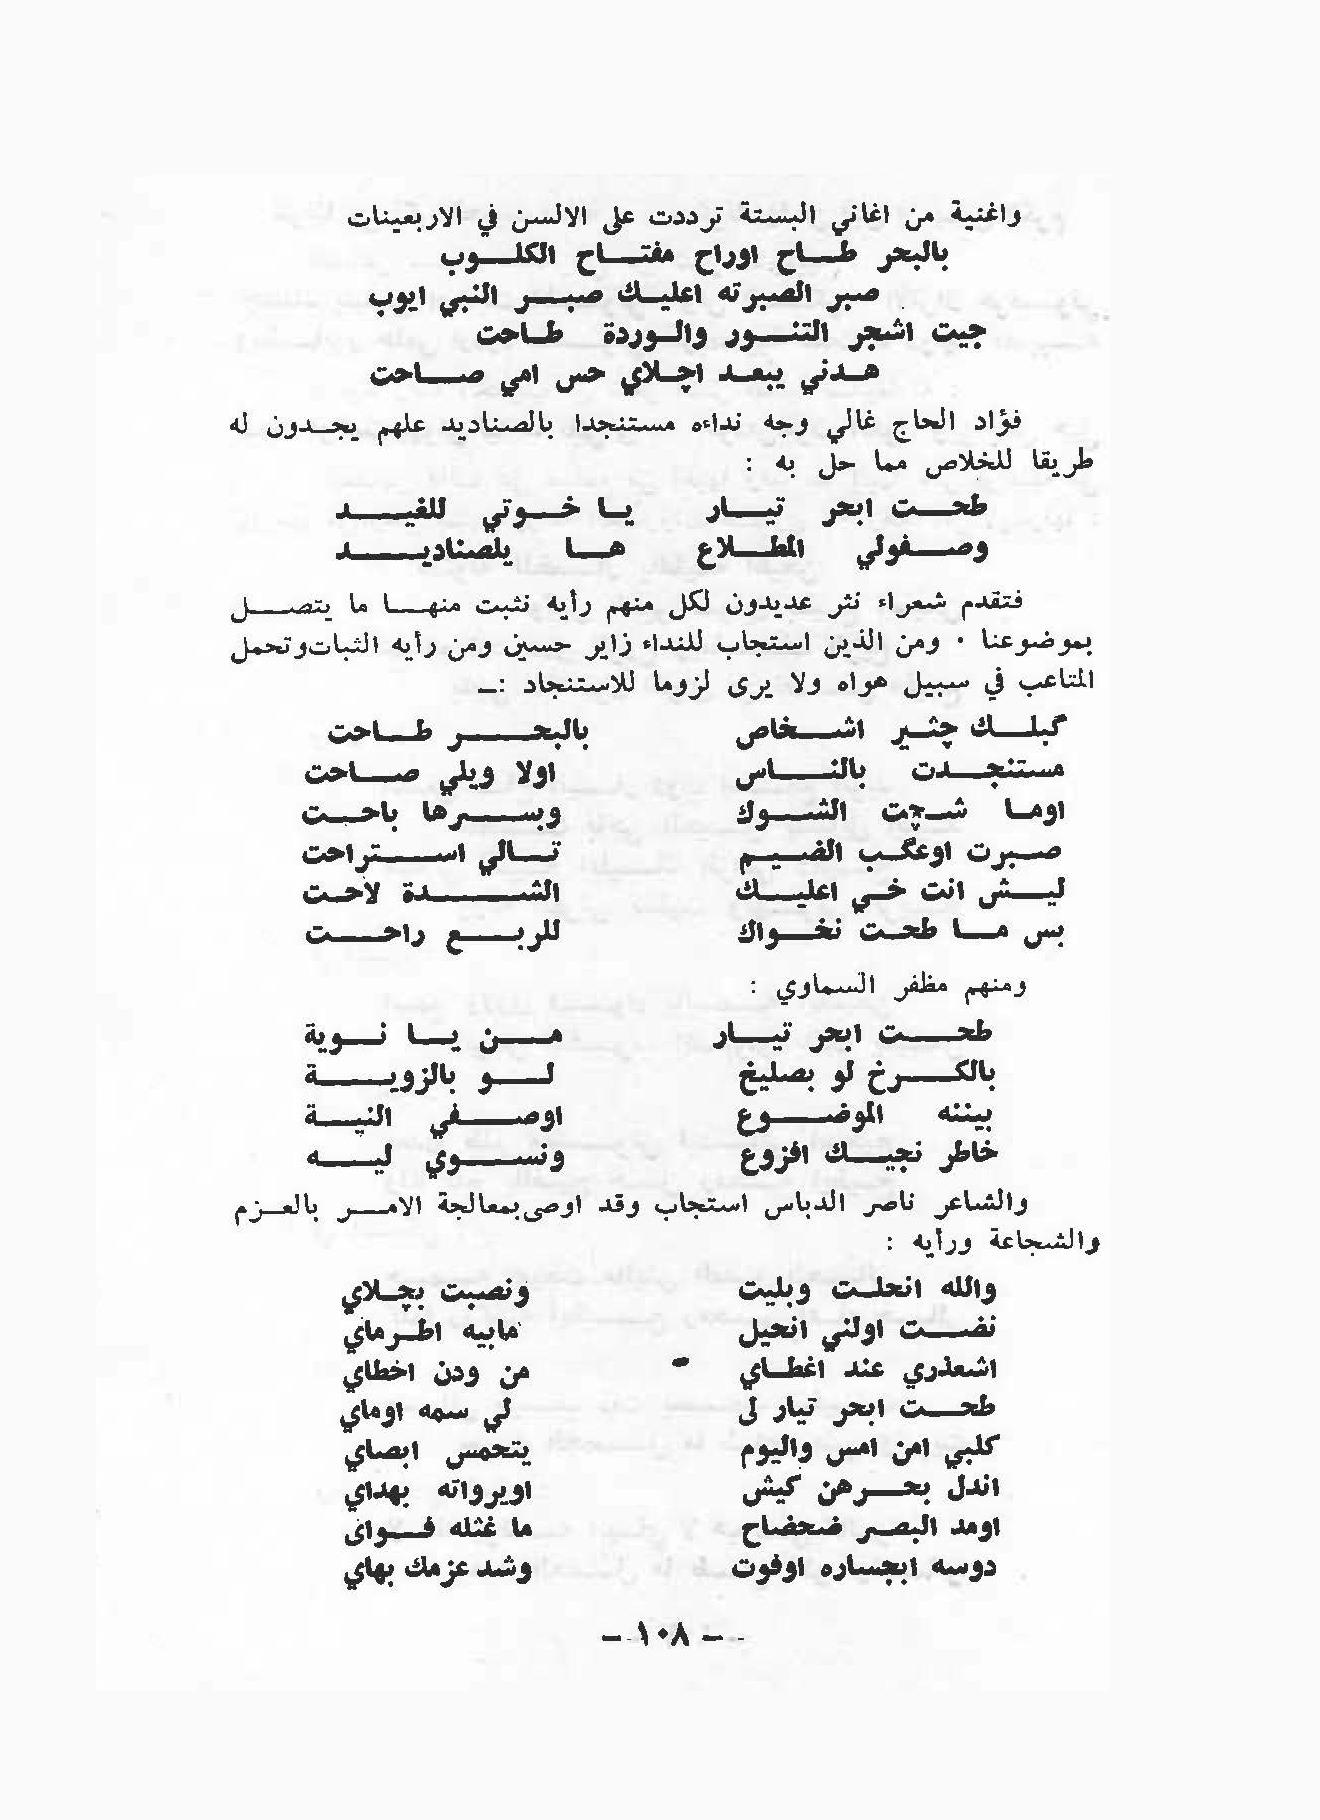 واغنية من اغاني البستة ترددت على الالسن في الاربعينات
بالبحر طاح اوراح مفتاح الكلوب
صبر الصبرته اعليك صبر النبي ايوب
جيت اشجر التنور والوردة طاحت
هدني يبعد اچلاي حس امي صاحت
فؤاد الحاج غالي وجه نداءه مستنجدا بالصناديد علهم يجدون له
طريقا للخلاص مما حل به :
طحت ابحر تيار يا خوتي للغيد
وصفولي المطلاع ها يلصناديد
فتقدم شعراء نثر عديدون لكل منهم رأيه نثبت منها ما يتصل
بموضوعنا . ومن الذين استجاب للنداء زاير حسين ومن رأيه الثبات وتحمل
المتاعب في سبيل هواه ولا يرى لزوما للاستنجاد :ـ
گبلك چثير اشخاص بالبحر طاحت
مستنجدت بالناس اولا ويلي صاحت
اوما شچت الشوك وبسرها باحت
صبرت اوعگب الضيم تالي استراحت
ليش انت خي اعليك الشدة لاحت
بس ما طحت نخواك للربع راحت
ومنهم مظفر السماوي :
طحت ابحر تيار من يا نوية
بالكرخ لو بصليخ لو بالزوية
بيننه الموضوع اوصفي النية
خاطر نجيك افزوع ونسوي ليه
والشاعر ناصر الدباس استجاب وقد اوصى بمعالجة الامر بالعزم
والشجاعة ورأيه :
والله انحلت وبليت ونصبت بچلاي
نضت اولني انحيل مابيه اطرماي
اشعذري عند اغطاي من ودن اخطاي
طحت ابحر تيار لى لي سمه اوماي
كلبي امن امس واليوم يتحمس ابصاي
اندل بحرهن گيش اويرواته بهداي
اومد البصر ضحضاح ما غثله فواى
دوسه ابجساره اوفوت وشد عزمك بهاي
- ١٠٨ -